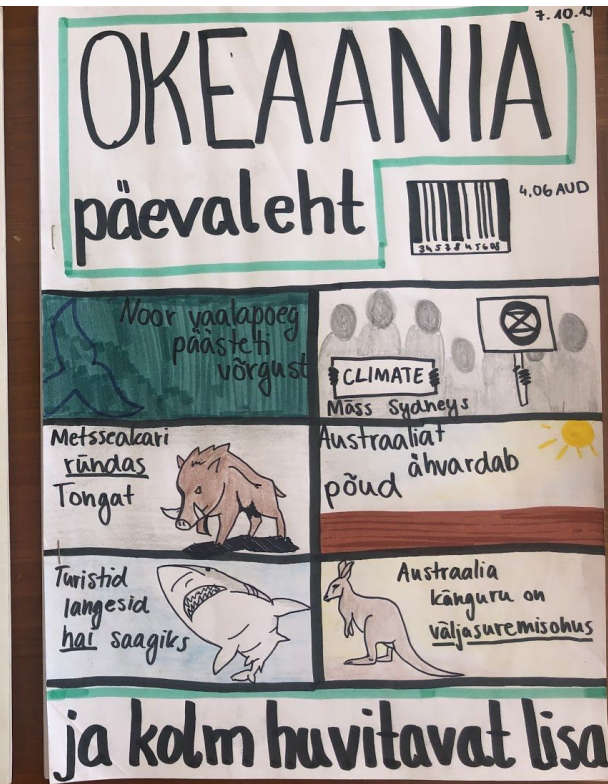 7.10.19
OKEAANIA
päevaleht
4,06 AUD
Noor vaalapoeg
päästeti
võrgust
CLIMATE
Mäss Sydneys
Metsseakari
ründas
Tongat
Austraaliat
ähvardab
põud
Turistid
langesid
hai saagiks
Austraalia
känguru on
väljasuremisohus
ja kolm huvitavat lisa